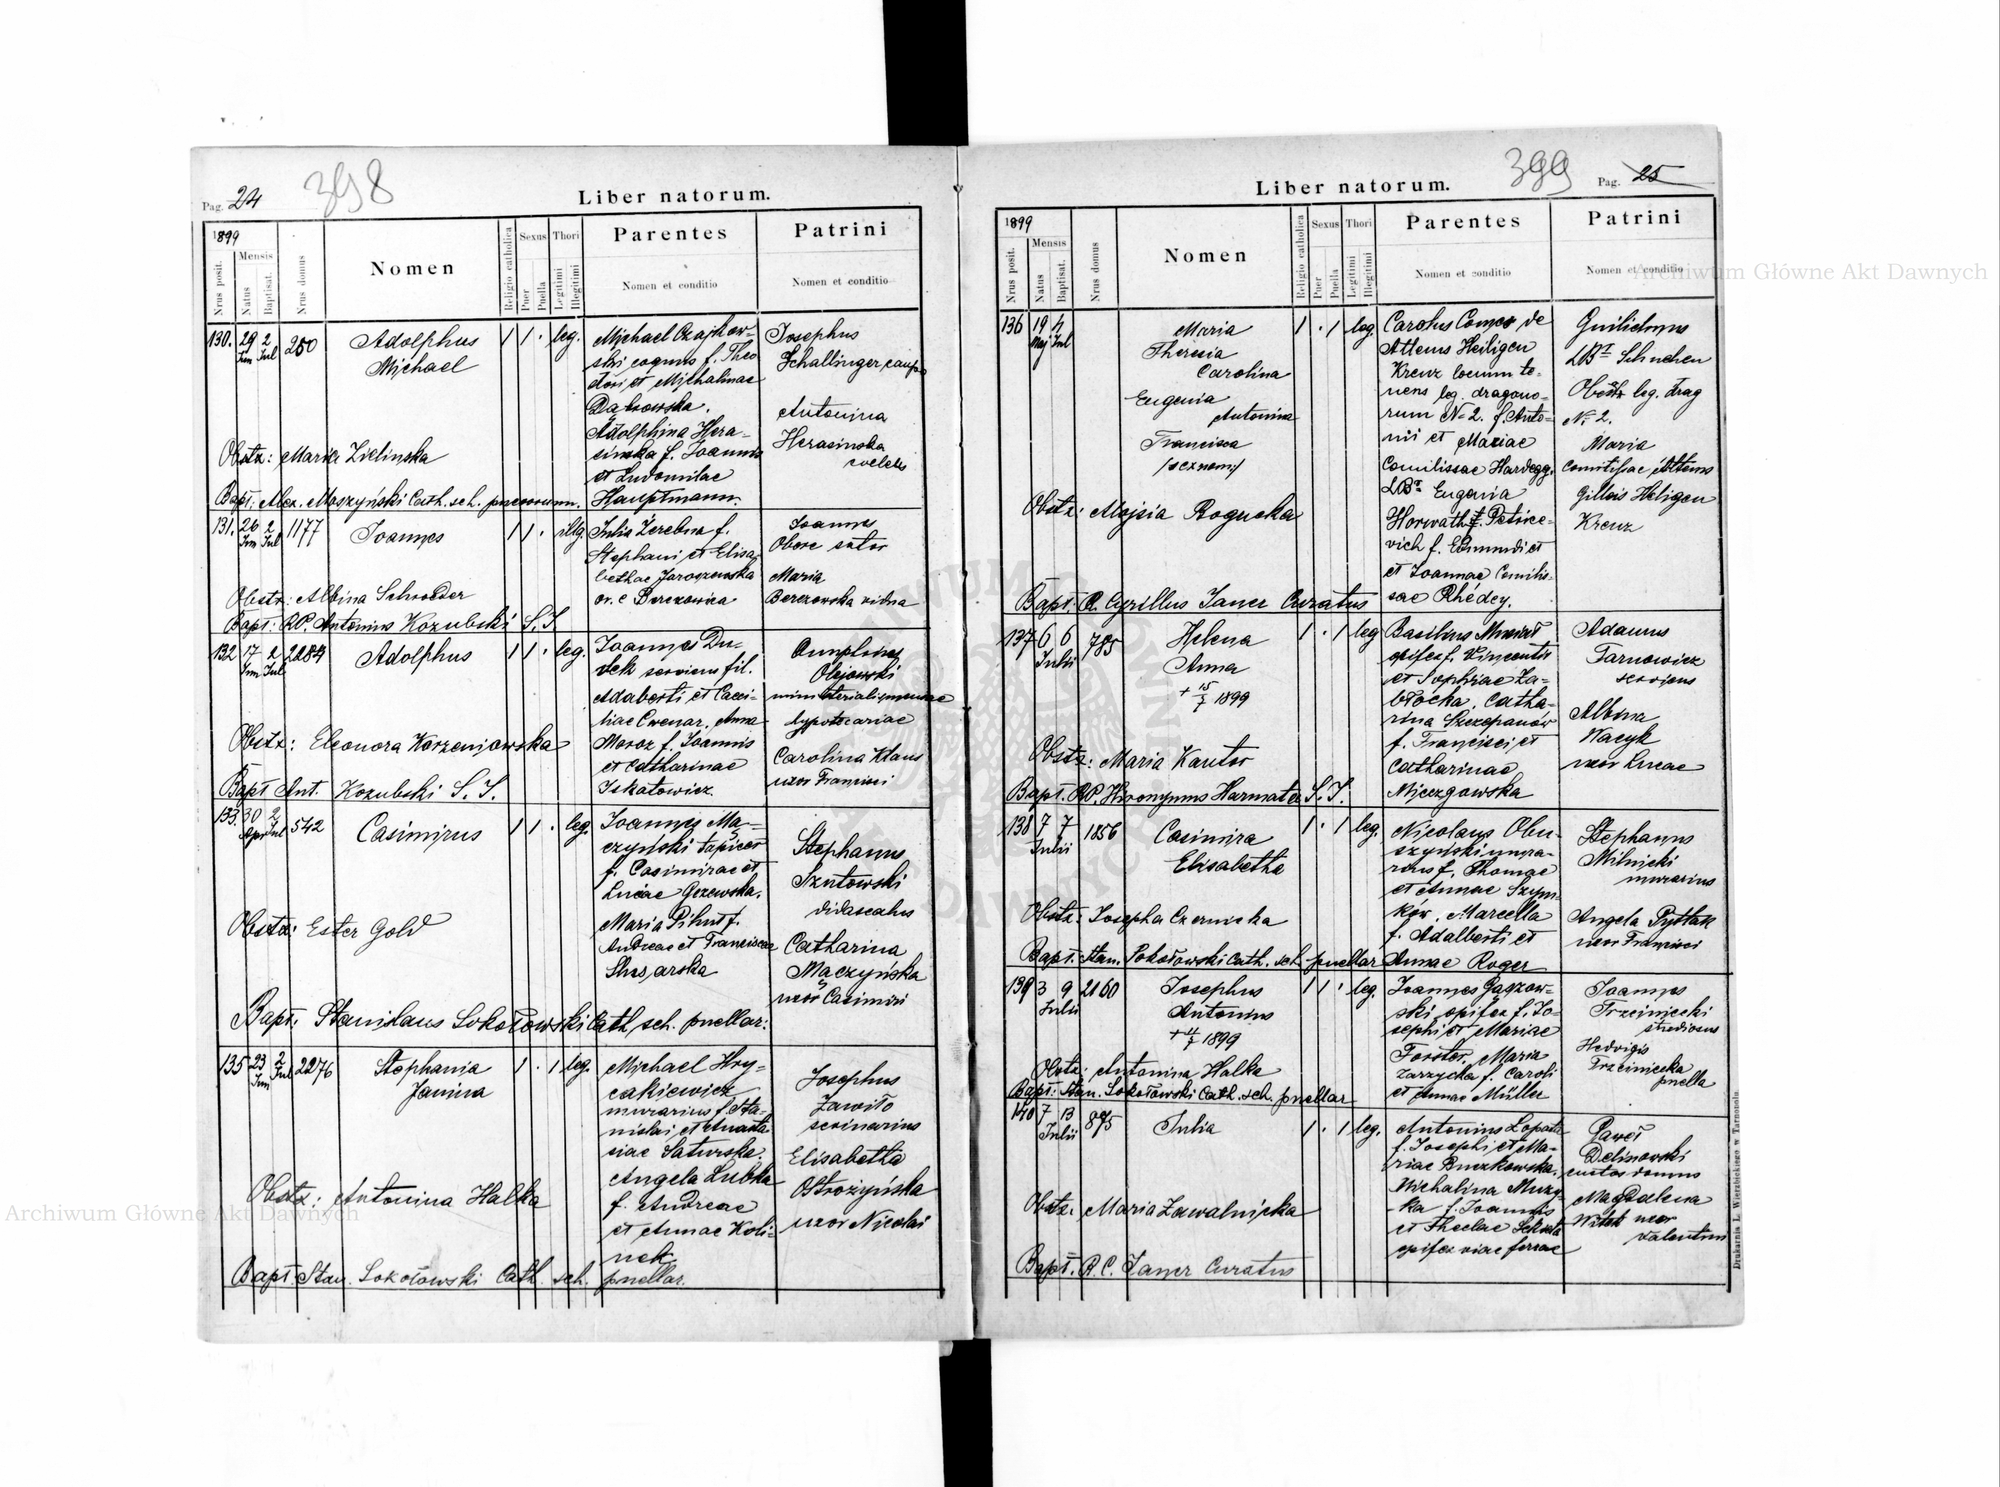 Pag. 24
398
Liber natorum.
1899
Nrus posit.
Mensis
Natus
Baptisat.
Nrus domus
Nomen
Religio catholica
Sexus
Puer
Puella
Thori
Legitimi
Illegitimi
Parentes
Nomen et conditio
Patrini
Nomen et conditio
130. 29 2 250 Adolphus 1 1 . leg.
Jun Jul Michael
Michael Czajkow-
ski coquus f. Theo
dori et Michalinae
Dąbrowska.
Adolphina Hera-
sinska f. Joannis
et Ludomilae
Hauptmann.
Josephus
Schallinger caupo
Antonina
Herasinska
Obstz: Maria Zielinska
Bapt. Alex. Moszyński Cath. sch. puerorum.
131. 26 2 1177 Joannes 1 1 . illg.
Jun Jul
Julia Zerebna f.
Stephani et Elisa
bethae Jaroszewska
or. e Berezowica
Joannes
Obere sutor
Maria
Berezowska vidua
Obstz: Albina Schroeder
Bapt: RP. Antonius Kozubski S.J
132 17 2 2284 Adolphus 1 1 . leg.
Jun Jul
Joannes Du-
dek serviens fil.
Adalberti et Caeci-
liae Cwenar, Anna
Moroz f. Joannis
et Catharinae
Iskatowicz.
Olejowski
hypotecariae
Carolina Klaus
uxor Francisci
Obstz: Eleonora Korzeniowska
Bapt Ant. Kozubski S.J.
133. 30 2 542 Casimirus 1 1 . leg.
Apr Jul
Joannes Mą-
czyński tapicer
f. Casimirae et
Luciae Gezewska.
Maria Pihut f.
Andreae et Franciscae
Stephanus
Szutowski
didascalus
Catharina
Mączyńska
uxor Casimiri
Obstz: Ester Gold
Bapt. Stanislaus Sokołowski Cath. sch. puellar:
135 23 2 2276 Stephania 1 . 1 leg.
Jun Jul Janina
Michael Hry-
cakiewicz
murarius f. Sta-
nislai et Anasta
siae Saturska.
Angela Lubka
f. Andreae
et Annae Koli-
nek
Josephus
Zawiło
scrinarius
Elisabetha
Ostrożyńska
uxor Nicolai
Obstz: Antonina Halka
Bapt: Stan. Sokołowski Cath. sch. puellar.
399
Pag. 25
Liber natorum.
1899
Nrus posit.
Mensis
Natus
Baptisat.
Nrus domus
Nomen
Religio catholica
Sexus
Puer
Puella
Thori
Legitimi
Illegitimi
Parentes
Nomen et conditio
Patrini
Nomen et conditio
136 19 4 Maria 1 . 1 leg.
Maj Jul Theresia
Carolina
Eugenia
Antonina
Francisca
Carolus Comes de
Attems Heiligen
Kreuz locum te-
nens leg. dragono-
rum № 2. f. Anto-
nii et Mariae
Comitissae Hardegg.
Eugenia
Horwath Petrice-
vich f. Edmundi et
et Joannae Comitis-
sae Rhédey.
leg. drag
№ 2.
Maria
comitissae Attems
Heligen
Kreuz
Obstz: Alojsia Rogucka
Bapt: R. Cyrillus Janer Curatus
137 6 6 785 Helena 1 . 1 leg
Julii Anna
+ 15/7 1899
f. Vincentii
et Sophiae Za-
błocka, Catha-
rina Szczepanów
f. Francisci et
Catharinae
Adamus
Tarnowicz
serviens
Albina
Wacyk
uxor Lucae
Obstz: Maria Kantor
Bapt. RP. Hieronymus Harmata S.J.
138 7 7 1856 Casimira 1 . 1 leg.
Julii Elisabetha
Nicolaus Obu-
szyński mura-
rius f. Thomae
et Annae Szym-
ków, Marcella
f. Adalberti et
Annae Roger
Stephanus
Milnicki
murarius
Angela Pytlak
uxor Francisci
Obstz: Josepha Czernicka
Bapt. Stan. Sokołowski Cath. sch puellar
139 3 9 2160 Josephus 1 1 . leg.
Julii Antonius
+ 11/7 1899
ski opifex f. Jo-
sephi et Mariae
Forster, Maria
Zarzycka f. Caroli
et Annae Müller
Joannes
Trzciniecki
studiosus
Hedvigis
Trzciniecka
puella
Obstz: Antonina Halka
Bapt: Stan. Sokołowski Cath. sch. puellar
140 7 13 875 Julia 1 . 1 leg.
Julii
Antonius Łopata
f. Josephi et Ma-
riae Buczkowska,
Michalina Muzy-
ka f. Joannis
et Theclae
opifex viae ferreae
Paweł
Delinowski
custos domus
Magdalena
uxor
Valentini
Obstz. Maria Zawalnicka
Bapt. R. C. Janer Curatus
Drukarnia L. Wierzbickiego w Tarnopolu.
Archiwum Główne Akt Dawnych
Archiwum Główne Akt Dawnych